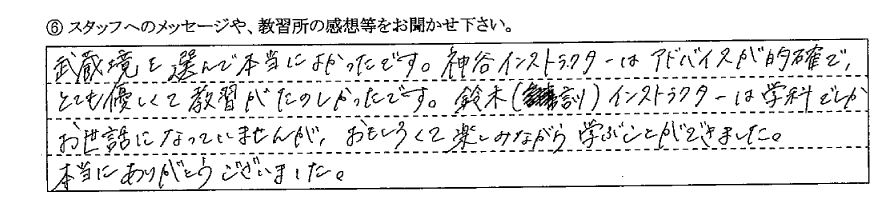 ⑥ スタッフへのメッセージや、教習所の感想等をお聞かせ下さい。
武蔵境を選んで本当によかったです。神谷インストラクターはアドバイスが的確で、
とても優しくて教習がたのしかったです。鈴木(訓)インストラクターは学科でしか
お世話になっていませんが、おもしろくて楽しみながら学ぶことができました。
本当にありがとうございました。